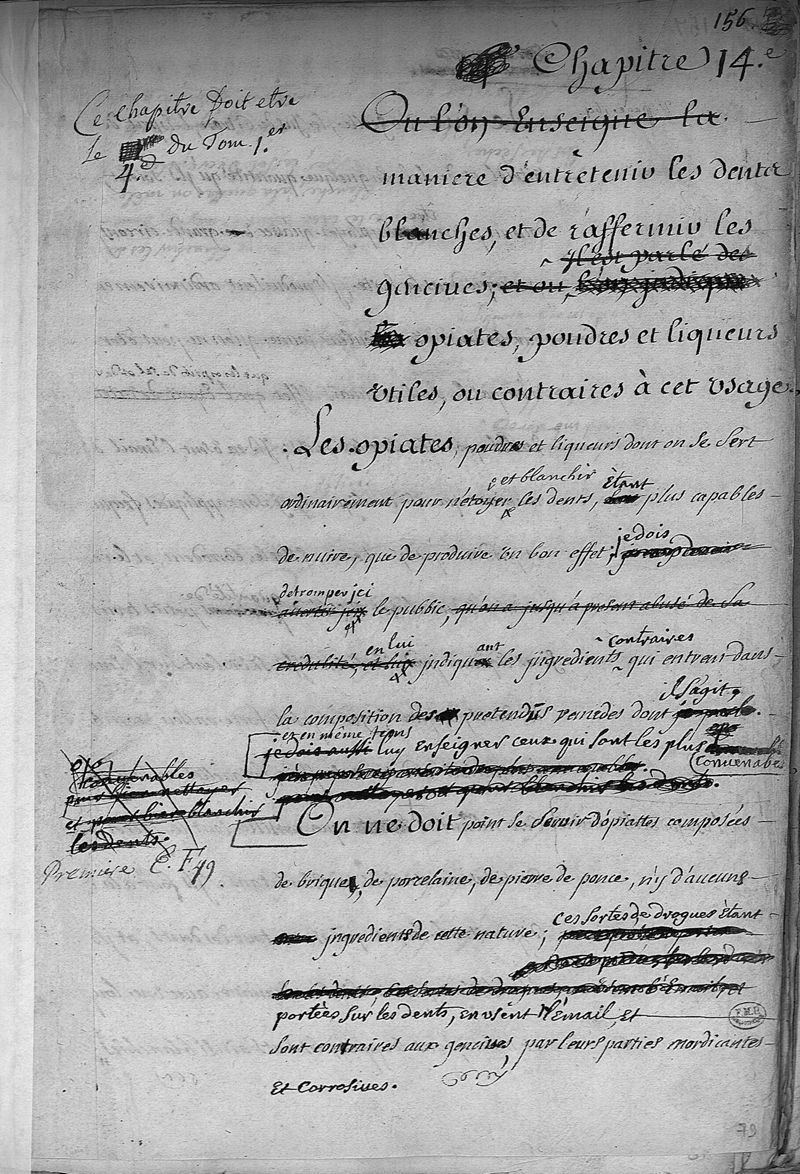 156
Chapitre 14.e
Ce chapitre Doit etre
Le 4.e du Tom. 1.er
Ou l'on Enseigne la
maniere d'entretenir les dents
blanches, et de raffermir les
Il est parlé des
gencives; et ou l'on indique
opiates, poudres et liqueurs
vtiles, ou contraires à cet vsage.
Les opiates, poudres et liqueurs dont on se sert
et blanchir étant
ordinairement pour nétoyer les dents, plus capables
je dois
de nuire, que de produire un bon effet;
detromper ici
avertir ici le public, qu'on a jusqu'à present abusé de sa
en lui ant contraires
credulité, et lui indiquer les ingredients qui entrent dans
il s'agit,
la composition des pretendus remedes dont je parle.
et en même tems
je dois aussi luy Enseigner ceux qui sont les plus
convenables
convenables
pour bien nettoyer
et pour bien blanchir
les dents.
Premiere E. F 49
On ne doit point se servir d'opiattes composées
de brique, de porcelaine, de pierre de ponce, n'y d'aucuns
ces sortes de drogues étant
ingredients de cette nature;
portées sur les dents, en usent l'émail, et
sont contraires aux gencives, par leurs parties mordicantes
et corrosives.
F.M.P.
79